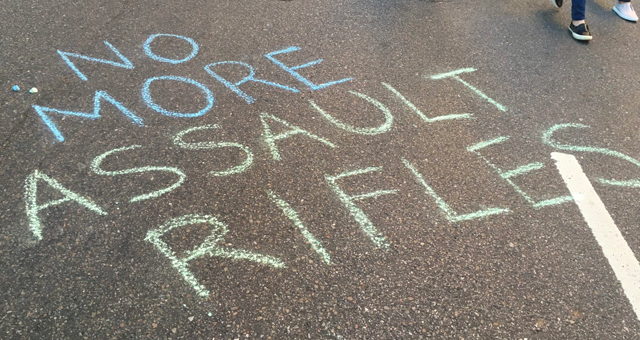 NO
MORE
ASSAULT
RIFLES